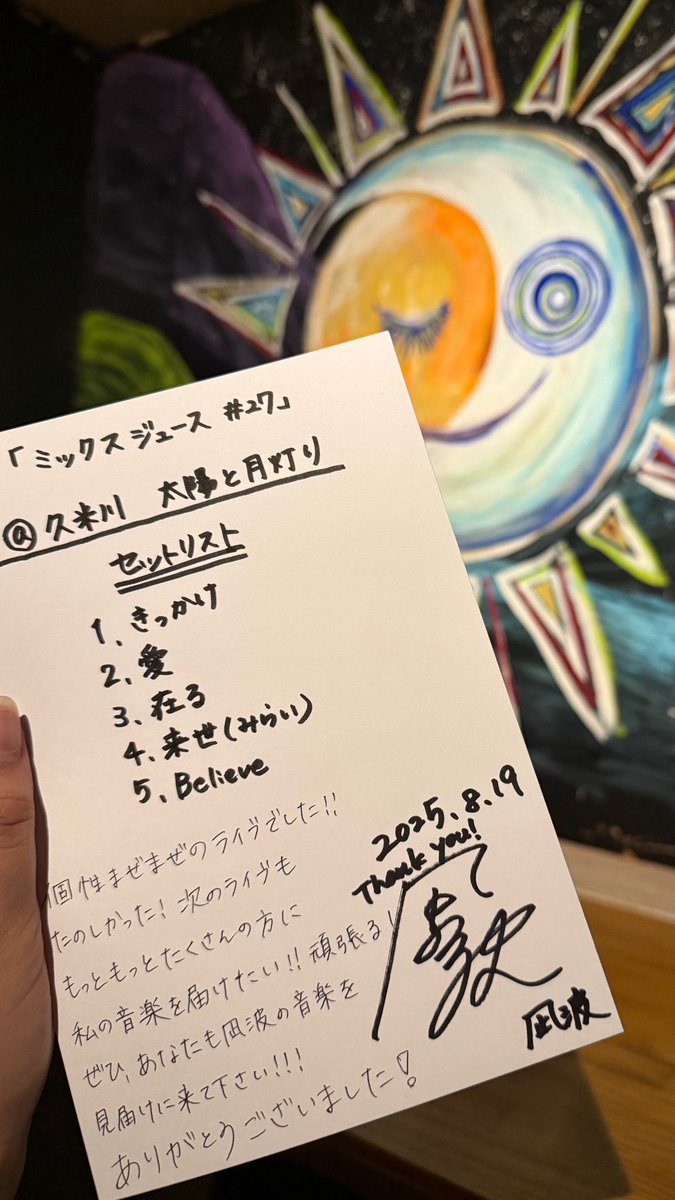 「ミックスジュース #27」
@久米川 太陽と月灯り
セットリスト
1、きっかけ
2、愛
3、在る
4、来世(みらい)
5、Believe
2025.8.19
Thank you!
凪波
個性まぜまぜのライブでした!!
たのしかった! 次のライブも
もっともっとたくさんの方に
私の音楽を届けたい!! 頑張る!
ぜひ、あなたも凪波の音楽を
見届けに来て下さい!!!
ありがとうございました!